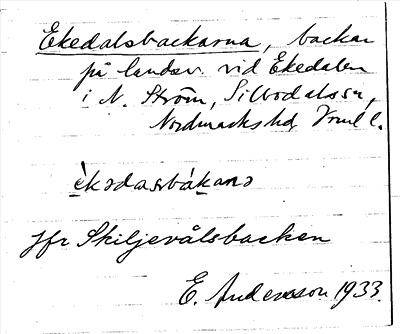 Ekedalsbackarna, backar
på landsv. vid Ekedalen
i N. Ström, Silbodals sn,
Nordmarks hd, Vrml l.
èkədasbákanə
Jfr Skiljevålsbacken
E. Andersson 1933.